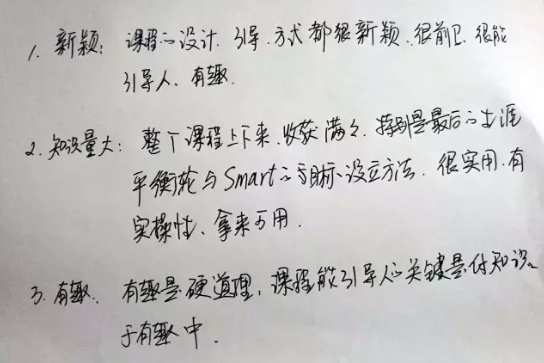 1. 新颖：课程的设计、引导、方式都很新颖、很前卫、很能
引导人、有趣.
2. 知识量大：整个课程上下来、收获满々、特别是最后的生涯
平衡轮与Smart的目标设立方法、很实用、有
实操性、拿来可用.
3. 有趣、有趣是硬道理、课程能引导人的关键是付知识
于有趣中.